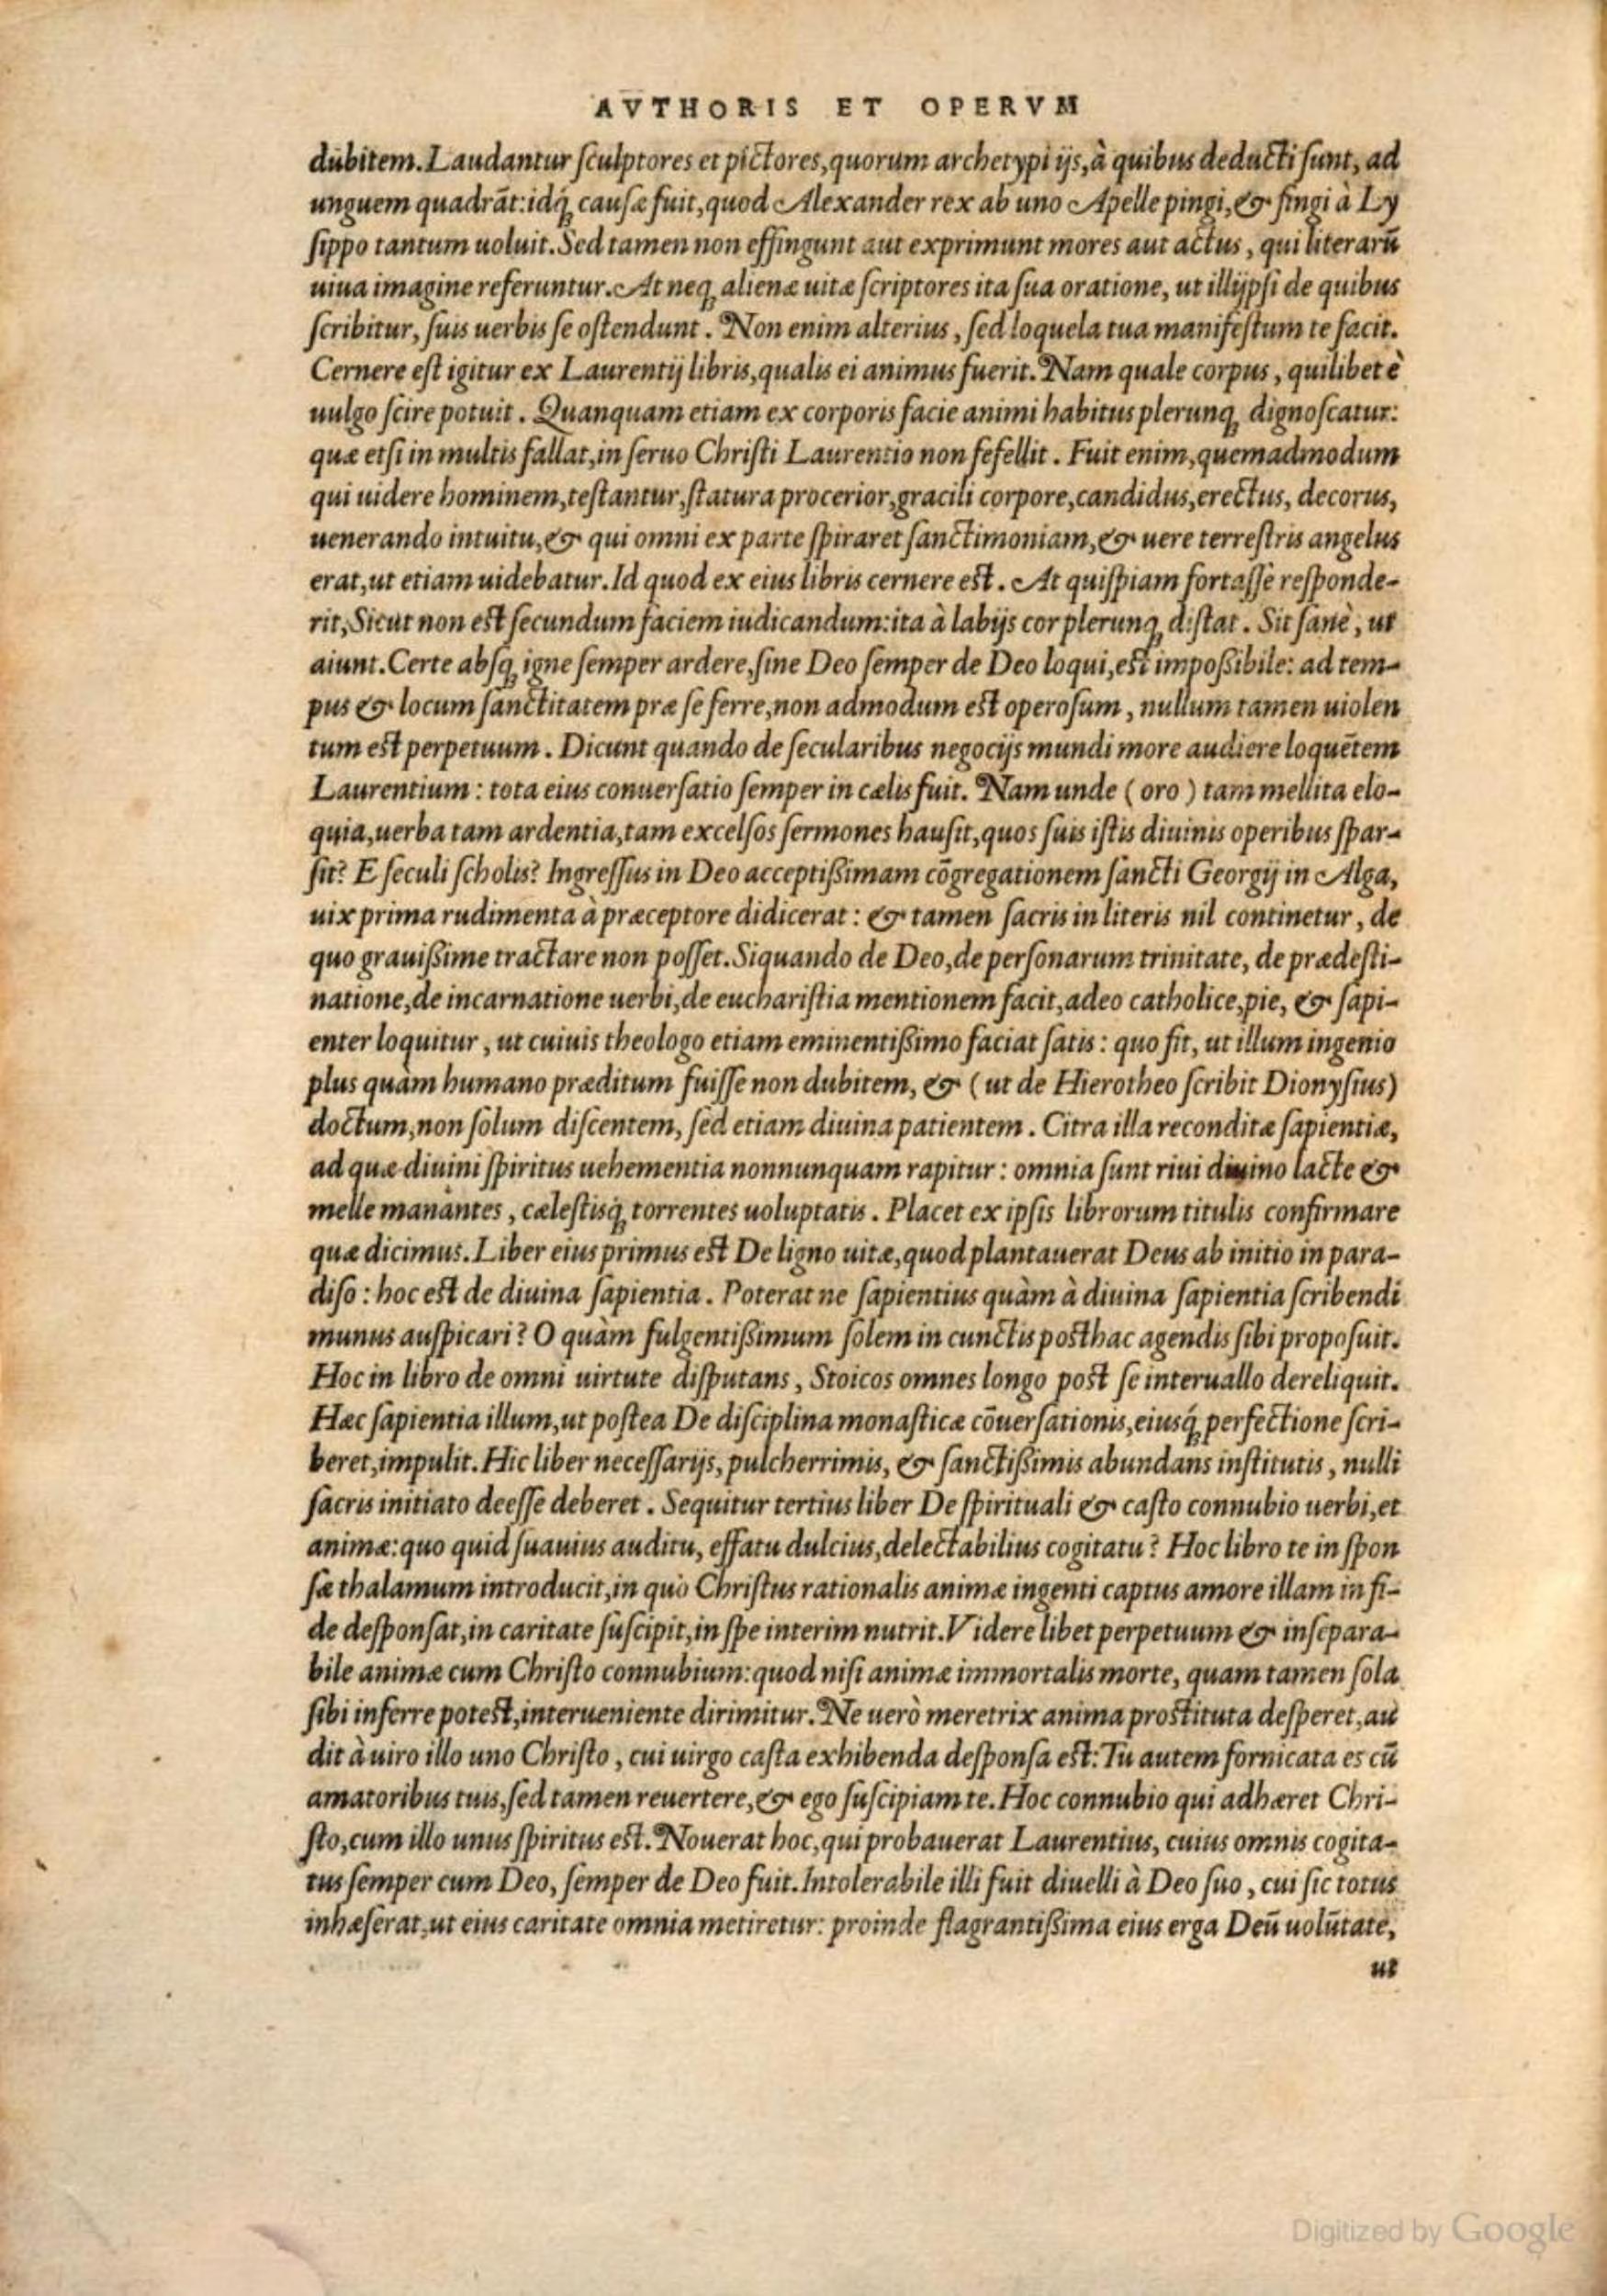 AVTHORIS ET OPERVM
dubitem. Laudantur sculptores et pictores, quorum archetypi ijs, à quibus deducti sunt, ad
unguem quadrāt: idq́; causæ fuit, quod Alexander rex ab uno Apelle pingi, & fingi à Ly
sippo tantum uoluit. Sed tamen non effingunt aut exprimunt mores aut actus, qui literarū
uiua imagine referuntur. At neq; alienæ uitæ scriptores ita sua oratione, ut illi ipsi de quibus
scribitur, suis uerbis se ostendunt. Non enim alterius, sed loquela tua manifestum te facit.
Cernere est igitur ex Laurentij libris, qualis ei animus fuerit. Nam quale corpus, quilibet è
uulgo scire potuit. Quanquam etiam ex corporis facie animi habitus plerunq; dignoscatur:
quæ etsi in multis fallat, in seruo Christi Laurentio non fefellit. Fuit enim, quemadmodum
qui uidere hominem, testantur, statura procerior, gracili corpore, candidus, erectus, decorus,
uenerando intuitu, & qui omni ex parte spiraret sanctimoniam, & uere terrestris angelus
erat, ut etiam uidebatur. Id quod ex eius libris cernere est. At quispiam fortasse responde-
rit, Sicut non est secundum faciem iudicandum: ita à labijs cor plerunq; distat. Sit sanè, ut
aiunt. Certe absq; igne semper ardere, sine Deo semper de Deo loqui, est impoßibile: ad tem-
pus & locum sanctitatem præ se ferre, non admodum est operosum, nullum tamen uiolen
tum est perpetuum. Dicunt quando de secularibus negocijs mundi more audiere loquētem
Laurentium: tota eius conuersatio semper in cælis fuit. Nam unde (oro) tam mellita elo-
quia, uerba tam ardentia, tam excelsos sermones hausit, quos suis istis diuinis operibus spar-
sit? E seculi scholis? Ingressus in Deo acceptißimam cōgregationem sancti Georgij in Alga,
uix prima rudimenta à præceptore didicerat: & tamen sacris in literis nil continetur, de
quo grauißime tractare non posset. Siquando de Deo, de personarum trinitate, de prædesti-
natione, de incarnatione uerbi, de eucharistia mentionem facit, adeo catholice, pie, & sapi-
enter loquitur, ut cuiuis theologo etiam eminentißimo faciat satis: quo fit, ut illum ingenio
plus quàm humano præditum fuisse non dubitem, & (ut de Hierotheo scribit Dionysius)
doctum, non solum discentem, sed etiam diuina patientem. Citra illa reconditæ sapientiæ,
ad quæ diuini spiritus uehementia nonnunquam rapitur: omnia sunt riui diuino lacte &
melle manantes, cælestisq́; torrentes uoluptatis. Placet ex ipsis librorum titulis confirmare
quæ dicimus. Liber eius primus est De ligno uitæ, quod plantauerat Deus ab initio in para-
diso: hoc est de diuina sapientia. Poterat ne sapientius quàm à diuina sapientia scribendi
munus auspicari? O quàm fulgentißimum solem in cunctis posthac agendis sibi proposuit.
Hoc in libro de omni uirtute disputans, Stoicos omnes longo post se interuallo dereliquit.
Hæc sapientia illum, ut postea De disciplina monasticæ cōuersationis, eiusq́; perfectione scri-
beret, impulit. Hic liber necessarijs, pulcherrimis, & sanctißimis abundans institutis, nulli
sacris initiato deesse deberet. Sequitur tertius liber De spirituali & casto connubio uerbi, et
animæ: quo quid suauius auditu, effatu dulcius, delectabilius cogitatu? Hoc libro te in spon
sæ thalamum introducit, in quo Christus rationalis animæ ingenti captus amore illam in fi-
de desponsat, in caritate suscipit, in spe interim nutrit. Videre libet perpetuum & insepara-
bile animæ cum Christo connubium: quod nisi animæ immortalis morte, quam tamen sola
sibi inferre potest, interueniente dirimitur. Ne uerò meretrix anima prostituta desperet, au
dit à uiro illo uno Christo, cui uirgo casta exhibenda desponsa est: Tu autem fornicata es cū
amatoribus tuis, sed tamen reuertere, & ego suscipiam te. Hoc connubio qui adhæret Chri-
sto, cum illo unus spiritus est. Nouerat hoc, qui probauerat Laurentius, cuius omnis cogita-
tus semper cum Deo, semper de Deo fuit. Intolerabile illi fuit diuelli à Deo suo, cui sic totus
inhæserat, ut eius caritate omnia metiretur: proinde flagrantißima eius erga Deū uolūtate,
ut
Digitized by Google